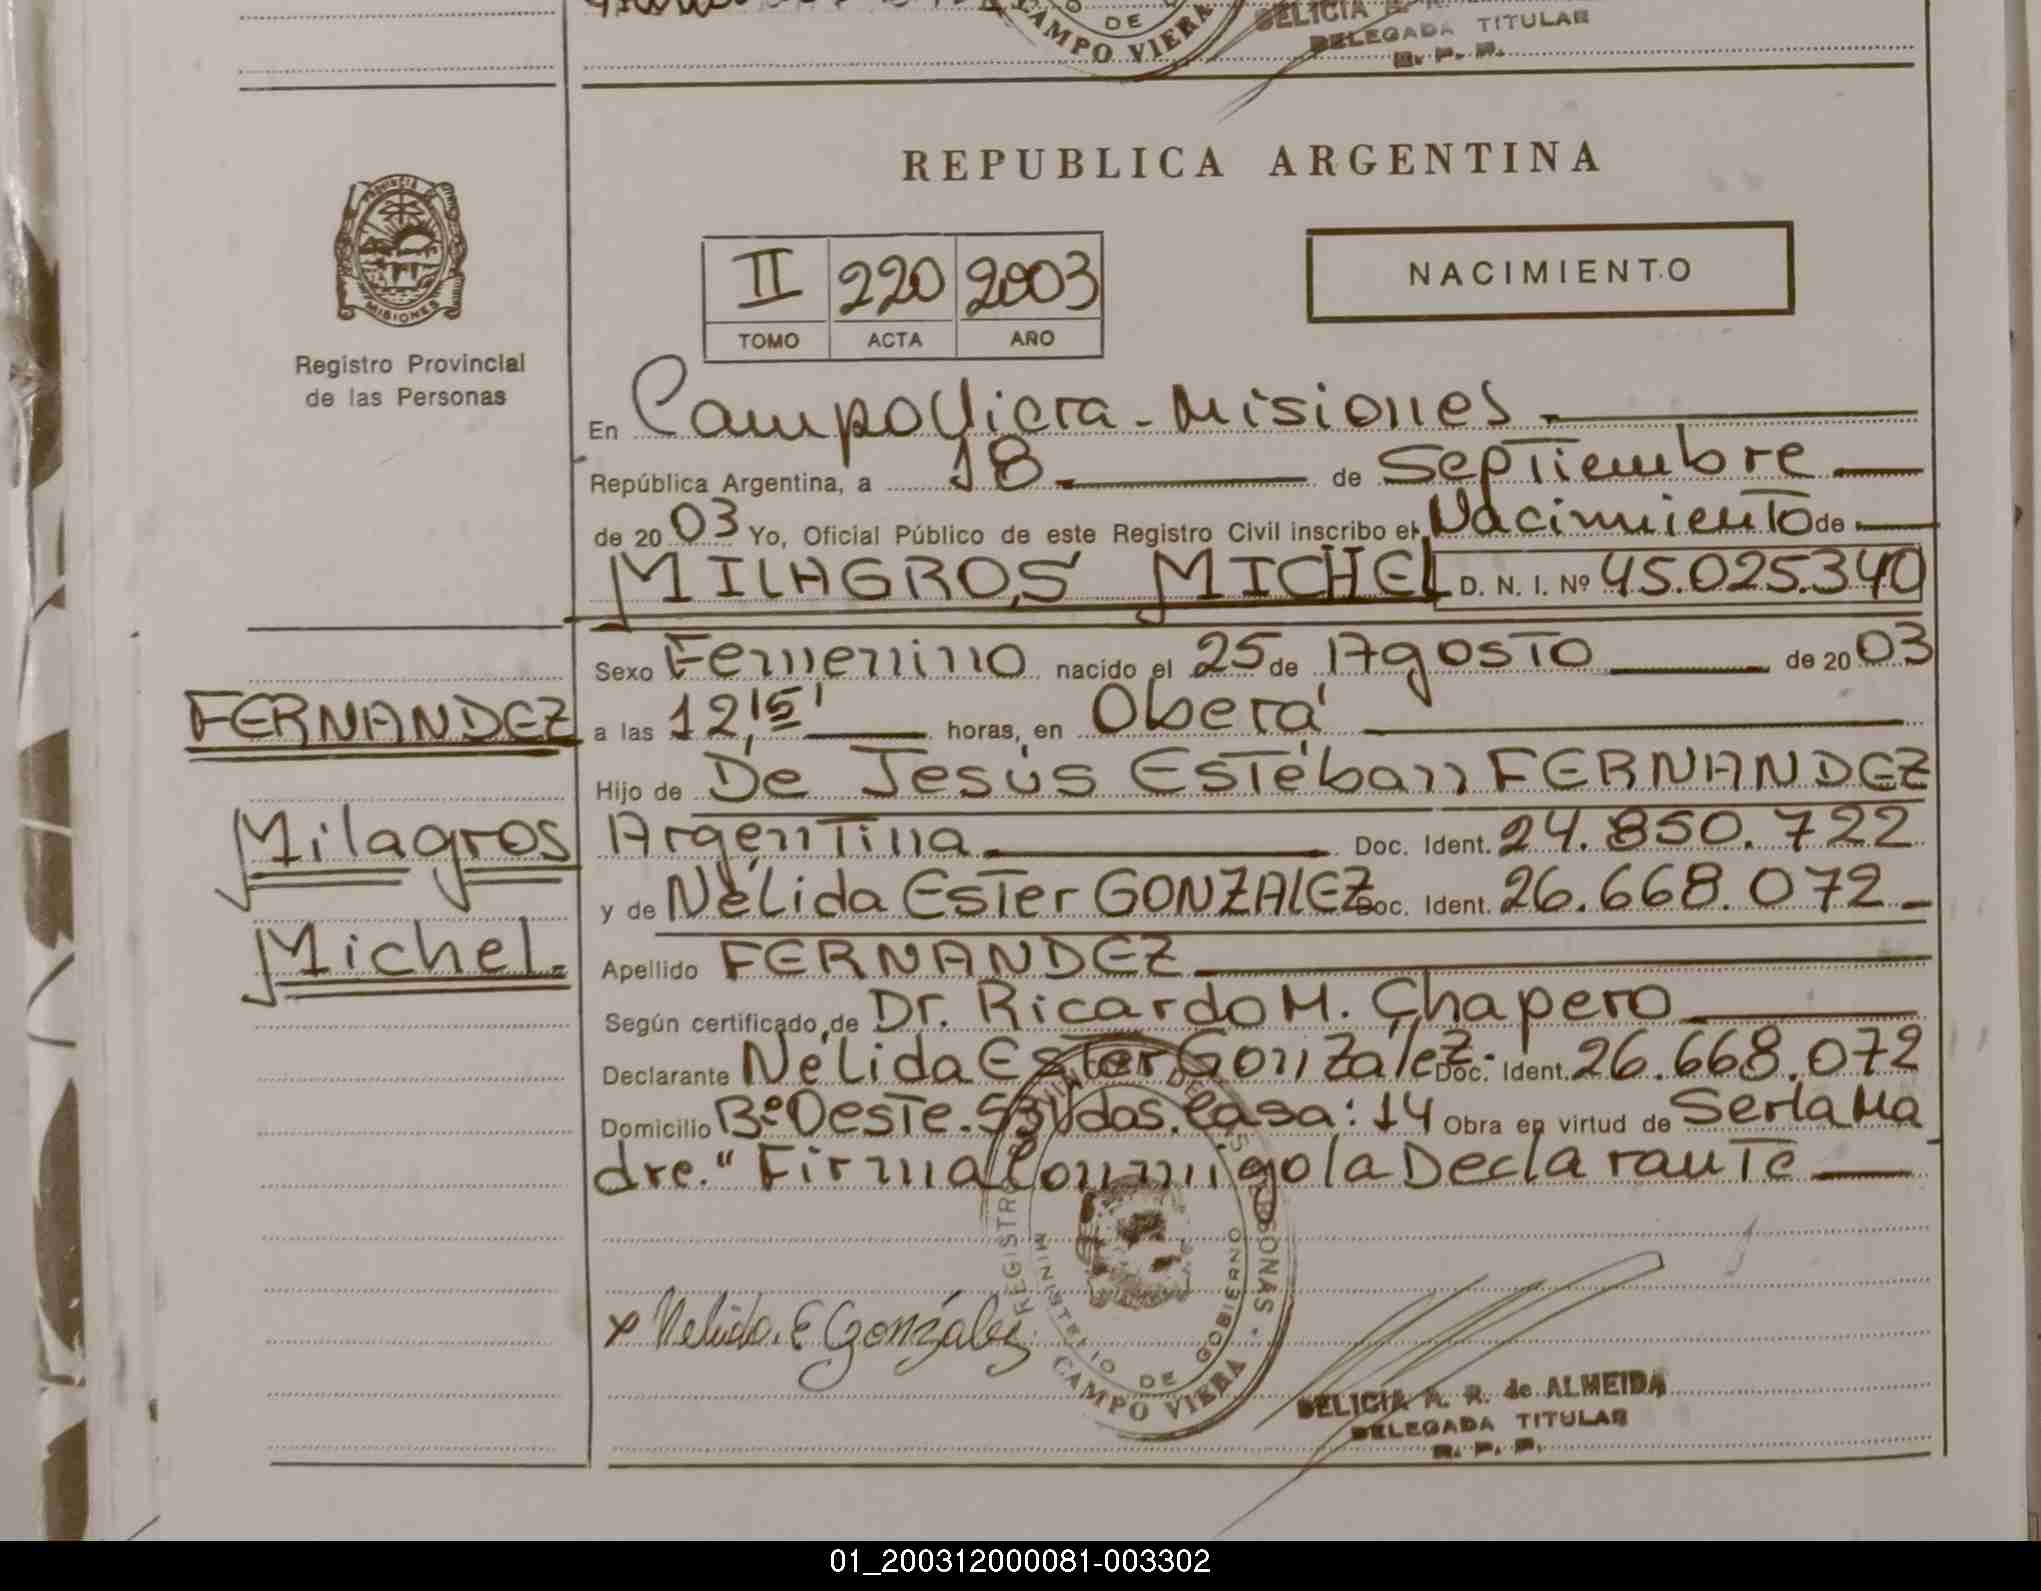 DE
CAMPO VIERA
DELICIA A. R.
DELEGADA TITULAR
R. P. P.
REPUBLICA ARGENTINA
PROVINCIA DE
MISIONES
Registro Provincial
de las Personas
II 220 2003
TOMO ACTA AÑO
NACIMIENTO
En Campo Viera - Misiones.
República Argentina, a 18 de Septiembre
de 2003 Yo, Oficial Público de este Registro Civil inscribo el Nacimiento de
MILAGROS MICHEL D. N. I. Nº 45.025.340
Sexo Femenino nacido el 25 de Agosto de 2003
FERNANDEZ
a las 12,15' horas, en Oberá
Hijo de De Jesús Estéban FERNANDEZ
Milagros
Argentina Doc. Ident. 24.850.722
y de Nélida Ester GONZALEZ Doc. Ident. 26.668.072
Michel.
Apellido FERNANDEZ
Según certificado de Dr. Ricardo M. Chapero
Declarante Nélida Ester Gonzalez. Doc. Ident. 26.668.072
Domicilio Bº Oeste. 53 Vdas. Casa: 14 Obra en virtud de Ser la Ma
dre." Firma Conmigo la Declarante
REGISTRO PERSONAS
MINISTERIO DE GOBIERNO
CAMPO VIERA
x Nelida. E Gonzalez
DELICIA A. R. de ALMEIDA
DELEGADA TITULAR
R. P. P.
01_200312000081-003302